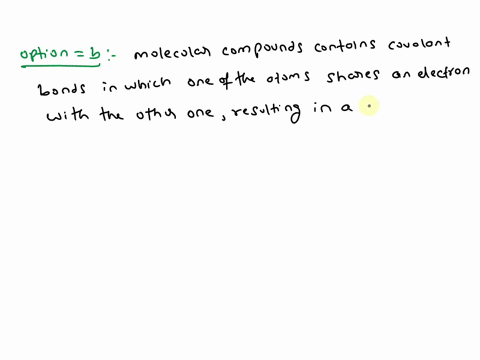 option = b :- molecular compounds contains covalant
bonds in which one of the atoms shares an electron
with the other one, resulting in a